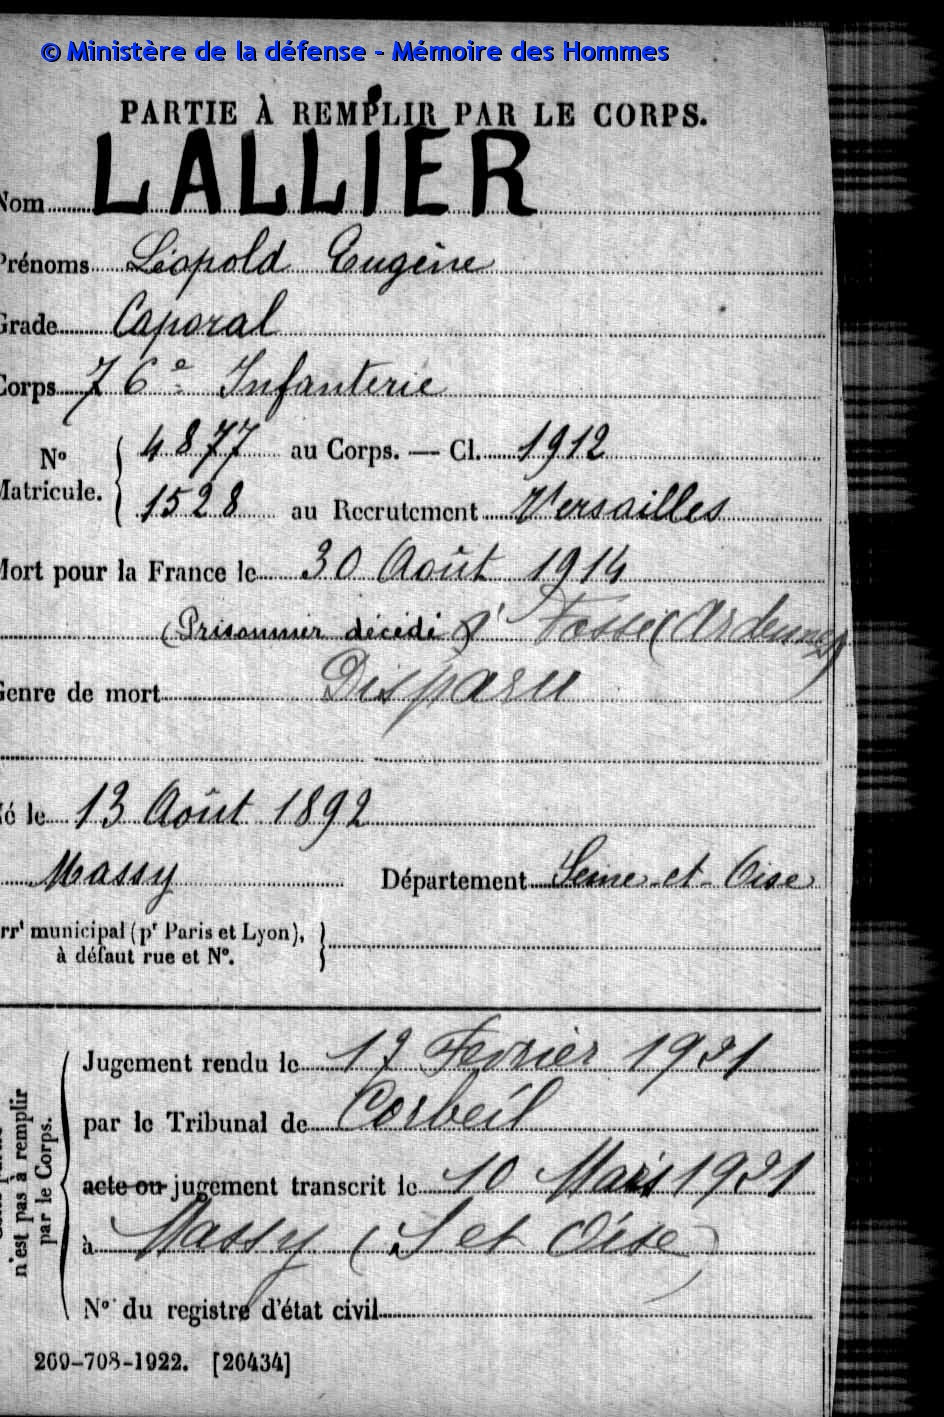 © Ministère de la défense - Mémoire des Hommes
PARTIE À REMPLIR PAR LE CORPS.
Nom LALLIER
Prénoms Léopold Eugène
Grade Caporal
Corps 76e Infanterie
No Matricule. { 4877 au Corps. — Cl. 1912
1528 au Recrutement Versailles
Mort pour la France le 30 Août 1914
(Prisonnier décédé) à Fossé (Ardennes)
Genre de mort Disparu
Né le 13 Août 1892
Massy Département Seine-et-Oise
rrt municipal (pr Paris et Lyon), }
à défaut rue et No.
n'est pas à remplir
par le Corps.
Jugement rendu le 17 Fevrier 1921
par le Tribunal de Corbeil
acte ou jugement transcrit le 10 Mars 1921
à Massy (S et Oise)
No du registre d'état civil
269-708-1922. [26434]